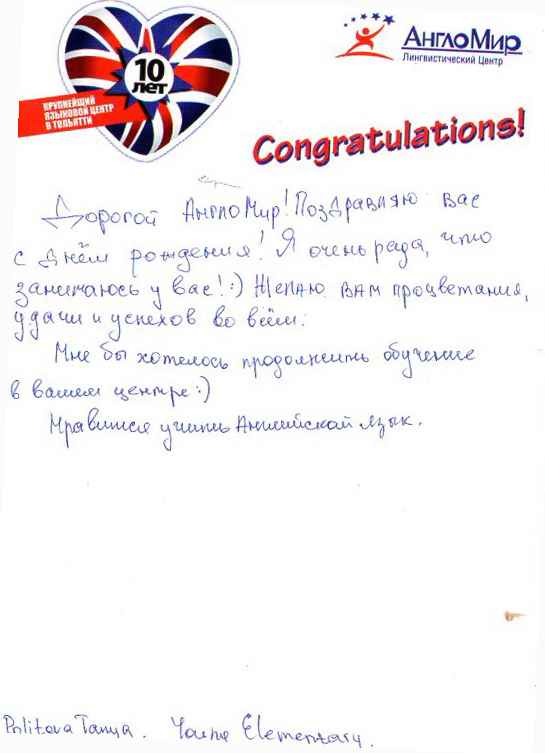 10
ЛЕТ
КРУПНЕЙШИЙ
ЯЗЫКОВОЙ ЦЕНТР
В ТОЛЬЯТТИ
АНГЛОМИР
Лингвистический Центр
Congratulations!
Дорогой АнглоМир! Поздравляю вас
с днём рождения! Я очень рада, что
занимаюсь у вас! :) Желаю вам процветания,
удачи и успехов во всём.
Мне бы хотелось продолжить обучение
в вашем центре :)
Нравится учить Английской язык.
Politova Tanya. Elementary.